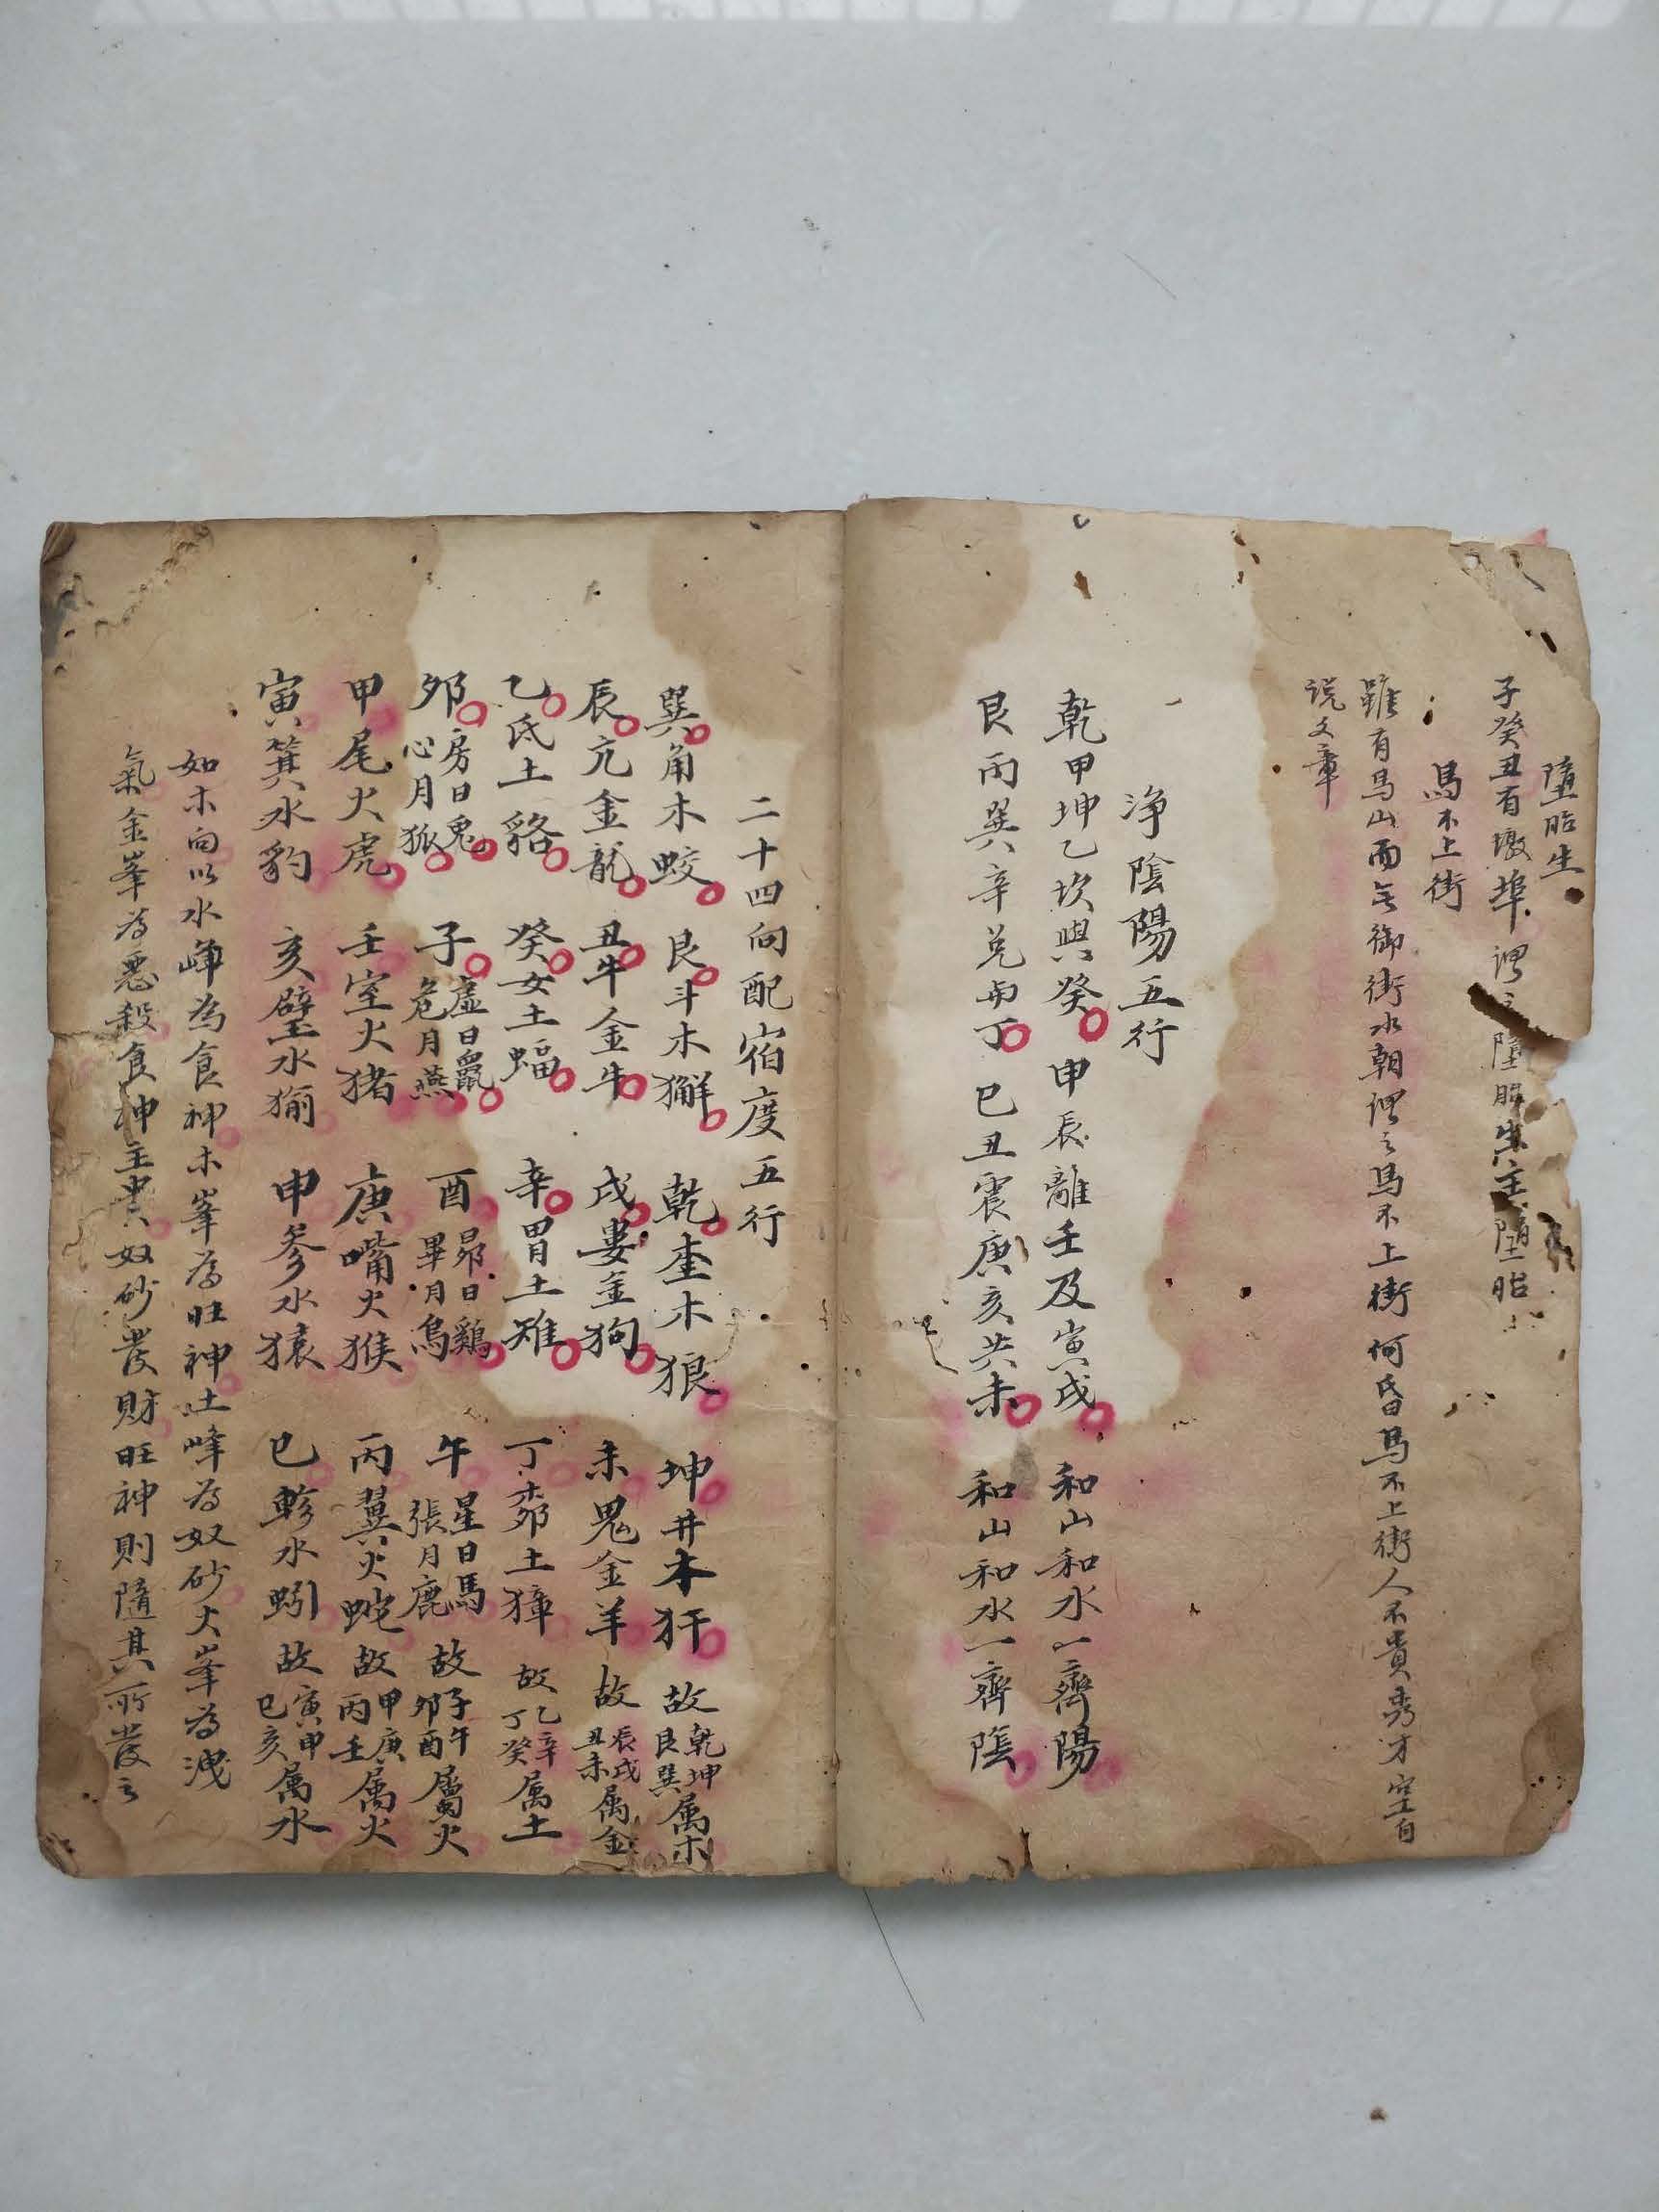 墮胎生
子癸丑有墩埠謂之墮胎生主墮胎
馬不上街
雖有馬山而無御街水朝謂之馬不上街何昏馬不上街人不貴秀才空自
説文章
淨陰陽五行
乾甲坤乙坎與癸申辰離壬及寅戌和山和水一齊陽
艮丙巽辛兌與丁巳丑震庚亥共未和山和水一齊陰
二十四向配宿度五行
巽角木蛟 艮斗木獬 乾奎木狼 坤井木犴 故乾坤艮巽属木
辰亢金龍 丑牛金牛 戌婁金狗 未鬼金羊 故辰戌丑未属金
乙氐土貉 癸女土蝠 辛胃土雉 丁柳土獐 故乙辛丁癸属土
卯房日兔心月狐 子虛日鼠危月燕 酉昴日鷄畢月烏 午星日馬張月鹿 故子午卯酉屬火
甲尾火虎 壬室火猪 庚嘴火猴 丙翼火蛇 故甲庚丙壬属火
寅箕水豹 亥壁水㺄 申參水猿 巳軫水蚓 故寅申巳亥属水
如木向以水峰為食神木峯為旺神土峰為奴砂火峯為洩
氣金峯為惡殺食神主貴奴砂發財旺神則隨其所發之